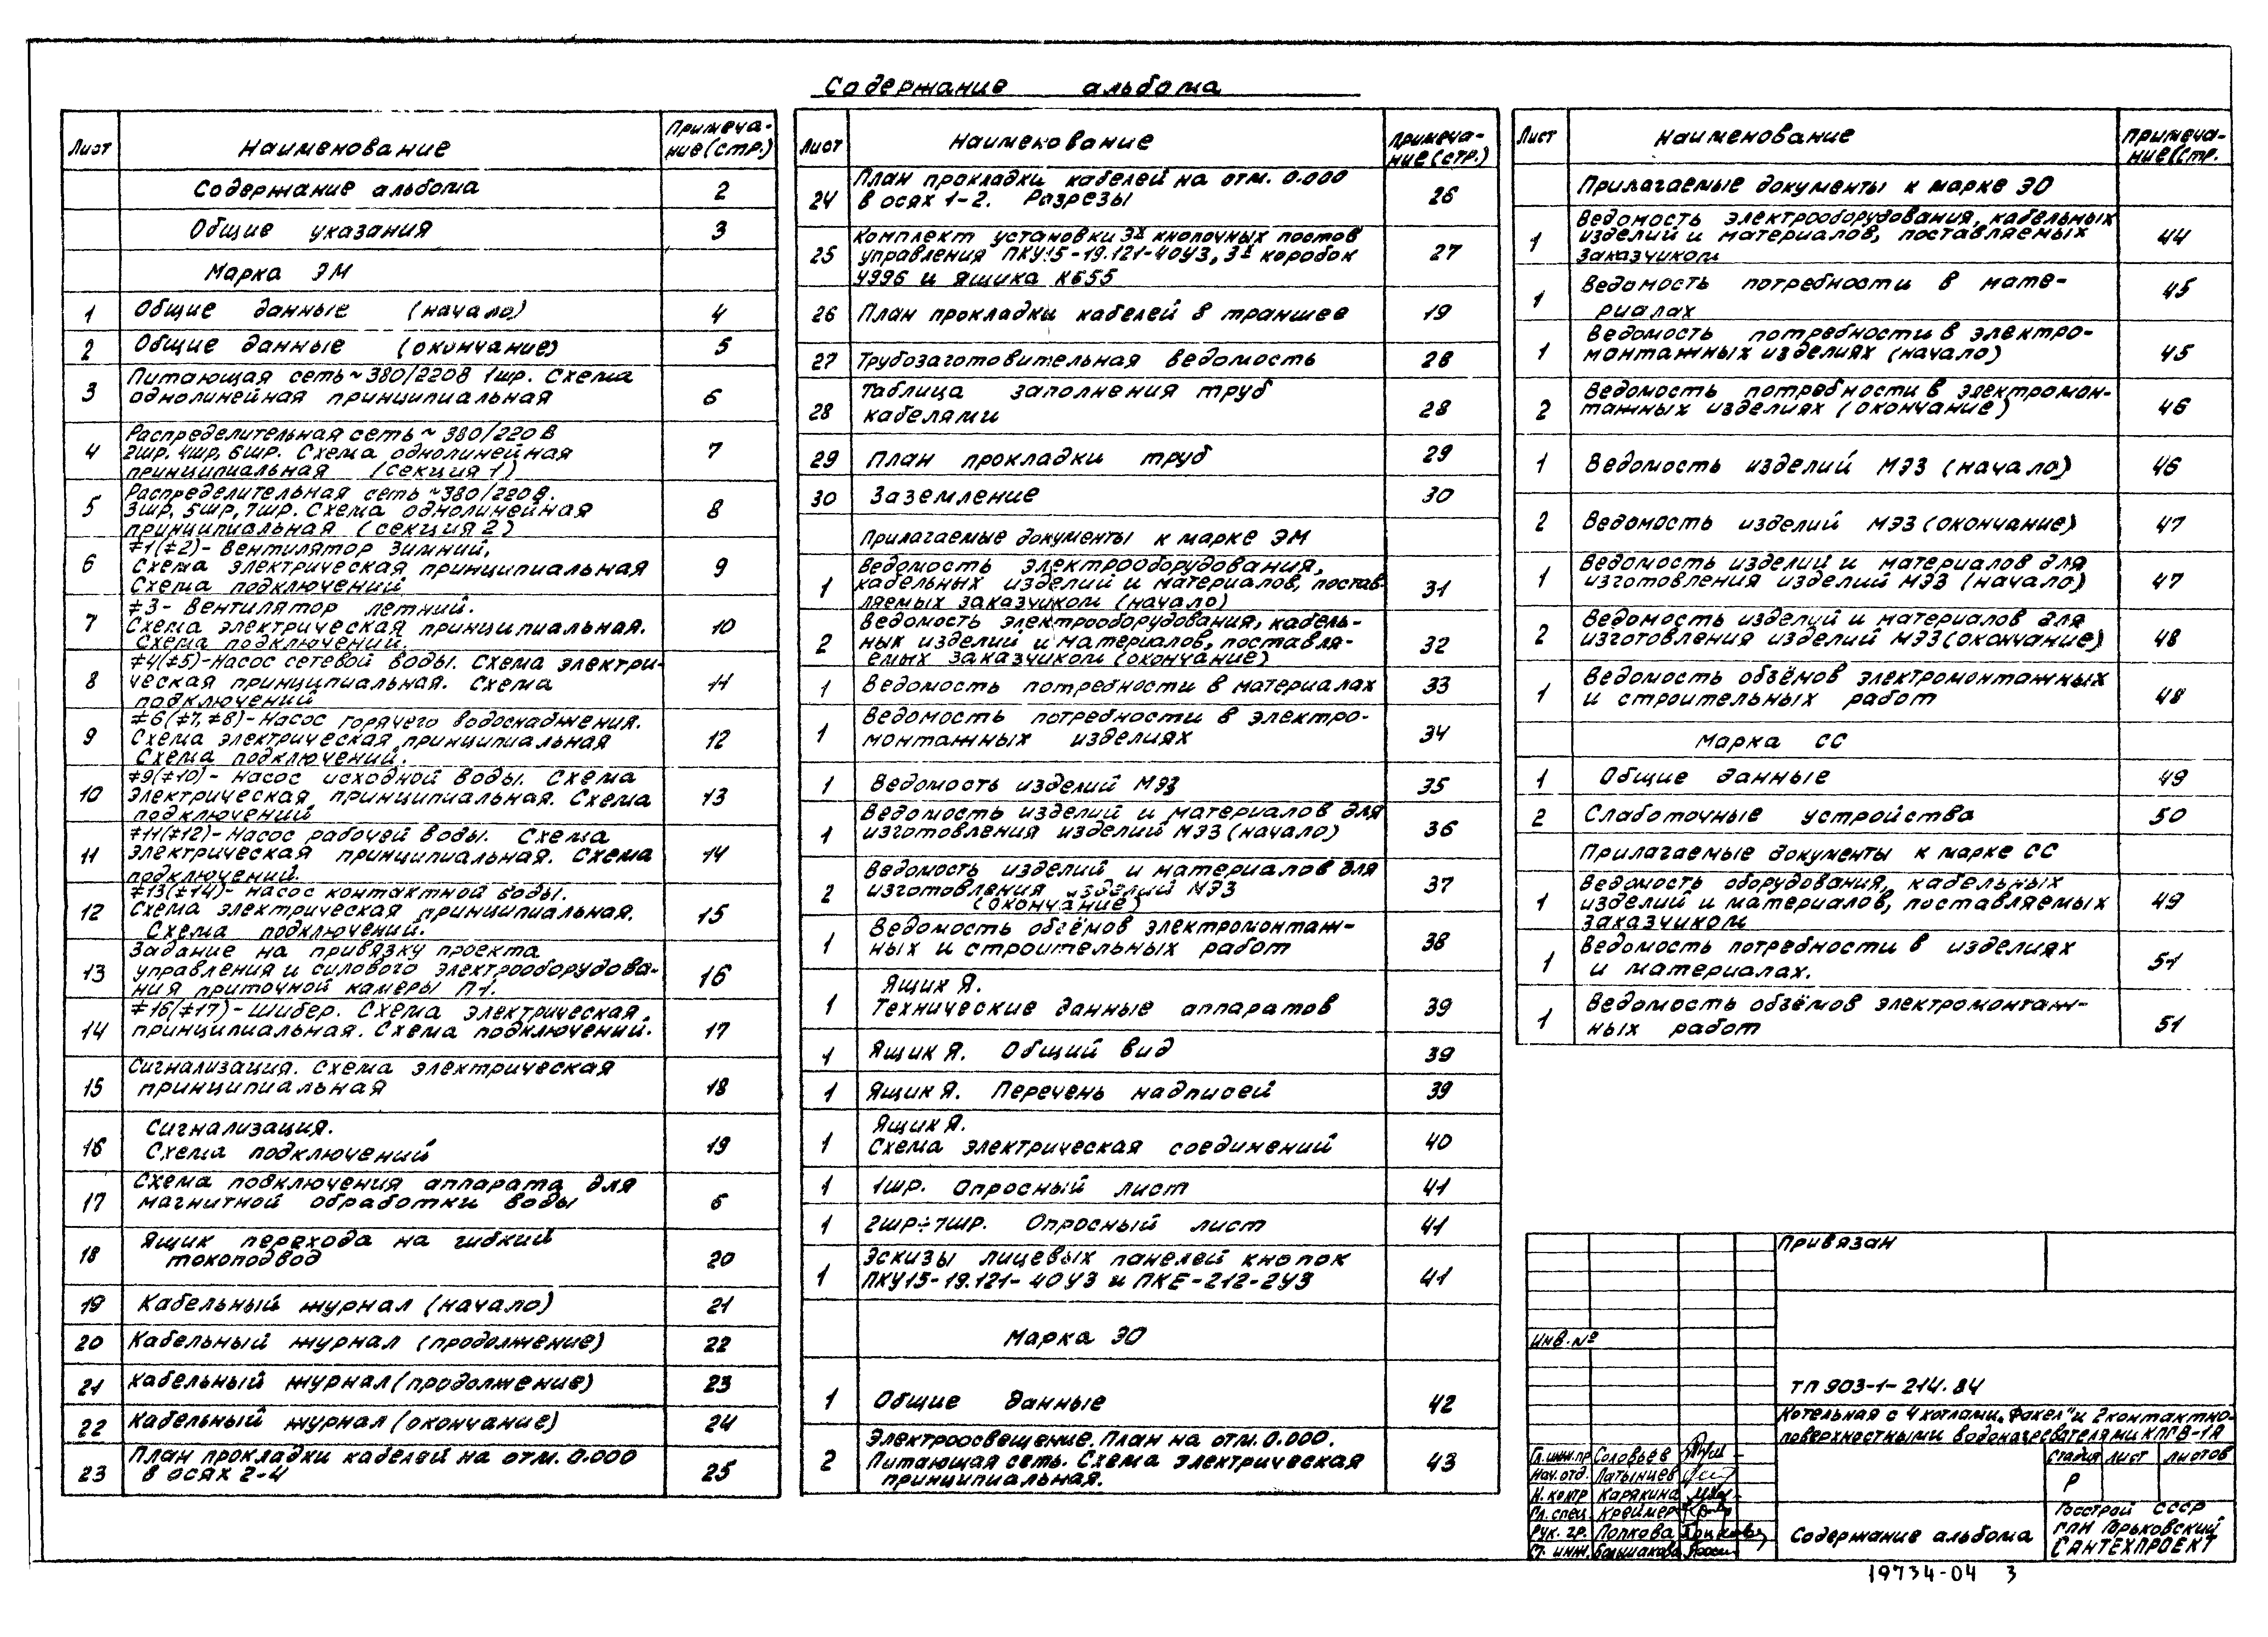 Содержание альбома
Лист Наименование Примеча-
ние(стр.)
Содержание альбома 2
Общие указания 3
Марка ЭМ
1 Общие данные (начало) 4
2 Общие данные (окончание) 5
3 Питающая сеть ~380/220В 1шр. Схема
однолинейная принципиальная 6
4 Распределительная сеть ~380/220В
2шр, 4шр, 6шр. Схема однолинейная 7
принципиальная (секция 1)
5 Распределительная сеть ~380/220В.
3шр, 5шр, 7шр. Схема однолинейная 8
принципиальная (секция 2)
6 ≠1(≠2)- Вентилятор зимний.
Схема электрическая принципиальная 9
Схема подключений
7 ≠3- Вентилятор летний.
Схема электрическая принципиальная. 10
Схема подключений.
8 ≠4(≠5)-Насос сетевой воды. Схема электри-
ческая принципиальная. Схема 11
подключений
9 ≠6(≠7,≠8)-Насос горячего водоснабжения.
Схема электрическая принципиальная 12
Схема подключений.
10 ≠9(≠10)- Насос исходной воды. Схема
электрическая принципиальная. Схема 13
подключений
11 ≠11(≠12)-Насос рабочей воды. Схема
электрическая принципиальная. Схема 14
подключений.
12 ≠13(≠14)- Насос контактной воды.
Схема электрическая принципиальная. 15
Схема подключений.
13 Задание на привязку проекта
управления и силового электрооборудова- 16
ния приточной камеры П-1.
14 ≠16(≠17)-Шибер. Схема электрическая
принципиальная. Схема подключений. 17
15 Сигнализация. Схема электрическая
принципиальная 18
16 Сигнализация.
Схема подключений 19
17 Схема подключения аппарата для
магнитной обработки воды 6
18 Ящик перехода на гибкий
токоподвод 20
19 Кабельный журнал (начало) 21
20 Кабельный журнал (продолжение) 22
21 Кабельный журнал (продолжение) 23
22 Кабельный журнал (окончание) 24
23 План прокладки кабелей на отм. 0.000
в осях 2-4 25
Лист Наименование Примеча-
ние(стр.)
24 План прокладки кабелей на отм. 0.000
в осях 1-2. Разрезы 26
25 Комплект установки 3х кнопочных постов
управления ПКУ15-19.121-40У3, 3х коробок 27
У996 и ящика К655
26 План прокладки кабелей в траншее 19
27 Трубозаготовительная ведомость 28
28 Таблица заполнения труб
кабелями 28
29 План прокладки труб 29
30 Заземление 30
Прилагаемые документы к марке ЭМ
1 Ведомость электрооборудования,
кабельных изделий и материалов, постав- 31
ляемых заказчиком (начало)
2 Ведомость электрооборудования, кабель-
ных изделий и материалов, поставля- 32
емых заказчиком (окончание)
1 Ведомость потребности в материалах 33
1 Ведомость потребности в электро-
монтажных изделиях 34
1 Ведомость изделий МЭЗ 35
1 Ведомость изделий и материалов для
изготовления изделий МЭЗ (начало) 36
2 Ведомость изделий и материалов для
изготовления изделий МЭЗ 37
(окончание)
1 Ведомость объёмов электромонтаж-
ных и строительных работ 38
1 Ящик Я.
Технические данные аппаратов 39
1 Ящик Я. Общий вид 39
1 Ящик Я. Перечень надписей 39
1 Ящик Я.
Схема электрическая соединений 40
1 1шр. Опросный лист 41
1 2шр÷7шр. Опросный лист 41
1 Эскизы лицевых панелей кнопок
ПКУ15-19.121-40У3 и ПКЕ-212-2У3 41
Марка ЭО
1 Общие данные 42
2 Электроосвещение. План на отм. 0.000.
Питающая сеть. Схема электрическая 43
принципиальная.
Лист Наименование Примеча-
ние(стр.
Прилагаемые документы к марке ЭО
1 Ведомость электрооборудования, кабельных
изделий и материалов, поставляемых 44
Заказчиком
1 Ведомость потребности в мате-
риалах 45
1 Ведомость потребности в электро-
монтажных изделиях (начало) 45
2 Ведомость потребности в электромон-
тажных изделиях (окончание) 46
1 Ведомость изделий МЭЗ (начало) 46
2 Ведомость изделий МЭЗ (окончание) 47
1 Ведомость изделий и материалов для
изготовления изделий МЭЗ (начало) 47
2 Ведомость изделий и материалов для
изготовления изделий МЭЗ (окончание) 48
1 Ведомость объёмов электромонтажных
и строительных работ 48
Марка СС
1 Общие данные 49
2 Слаботочные устройства 50
Прилагаемые документы к марке СС
1 Ведомость оборудования, кабельных
изделий и материалов, поставляемых 49
заказчиком
1 Ведомость потребности в изделиях
и материалах. 51
1 Ведомость объёмов электромонтаж-
ных работ 51
Привязан
Инв. №
ТП 903-1-214.84
Котельная с 4 котлами "Факел" и 2 контактно-
поверхностными водонагревателями КПГВ-1А
Гл.инж.пр Соловьев
Нач.отд. Латынцев
Н. контр Карякина
Гл. спец. Креймер
Рук. гр. Попкова
Ст. инж. Большакова
Стадия лист листов
Р
Содержание альбома
Госстрой СССР
ГПИ Горьковский
САНТЕХПРОЕКТ
19734-04 3